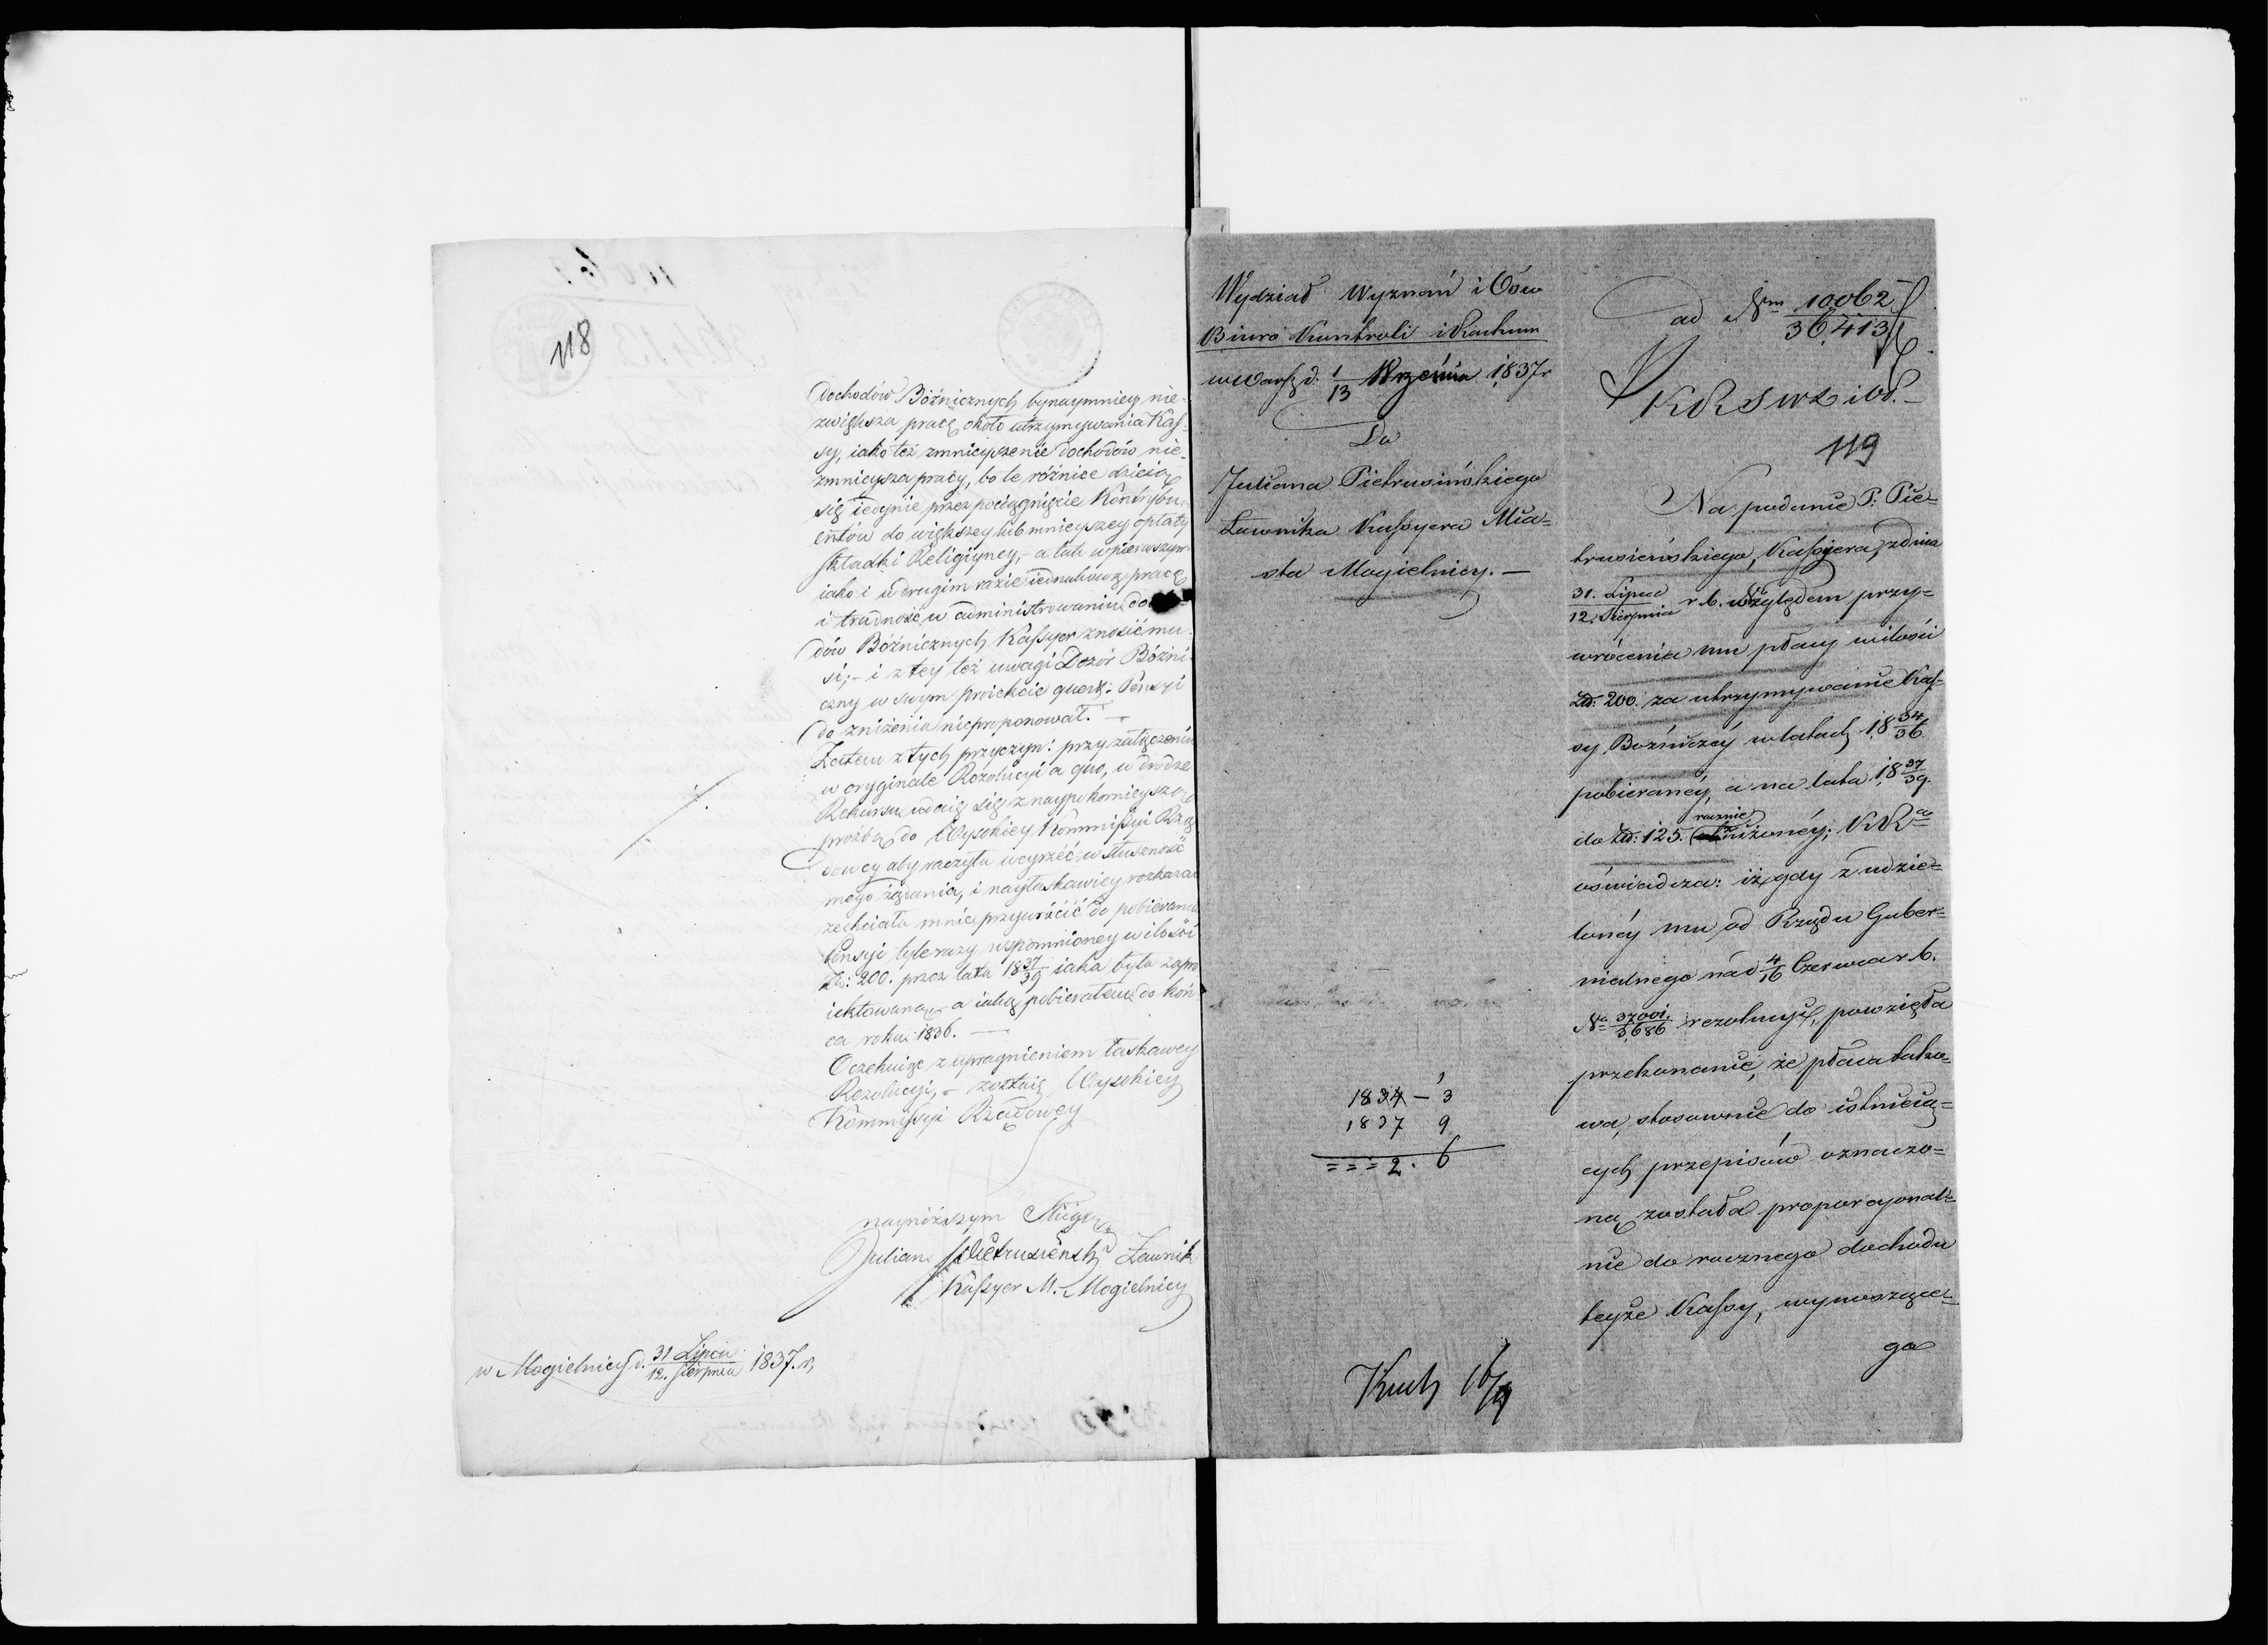 118
dochodów Bóźnicznych bynaymniey nie-
zwiększa pracę około utrzymywania Kas-
sy, iako też zmnieyszenie dochodów nie-
zmnieysza pracy, bo te różnice dzieią
się iedynie przez pociągnięcie Kontrybu-
entów do większey lub mnieyszey opłaty
składki Religiyney, - a tak w pierwszym
iako i w drugim razie iednakową pracę
i trudność w administrowaniu do
dów Bóźnicznych Kassyer znosić mu-
si; - i z tey też uwagi Dozór Bóżni-
czny w swym proiekcie quest: Pensyi
do zniżenia nieproponował. -
Zatem z tych przyczyn: przy załączeniu
w oryginale Rezolucyi a quo, w drodze
Rekursu udaię się z naypokornieyszą
prożbą do Wysokiey Kommissyi Rzą
dowey aby raczyła weyrzéć w słuszność
mego żądania, i nayłaskawiey rozkazać
zechciała mnie przywrócić do pobierania
Pensyi tyle razy wspomnioney w ilości
Zł: 200. przez lata 18 37/39 iaka była zapro
iektowaną - a iaką pobierałem do koń
ca roku 1836. -
Oczekuiąc z upragnieniem łaskawey
Rezolucyi, - zostaię Wysokiey
Kommissyi Rządowey
nayniższym Sługą
Julian Pietrusiński Ławnik
Kassyer M. Mogielnicy
w Mogielnicy d. 31 Lipca/12. Sierpnia 1837. r.
Wydział Wyznań i Ośw
Biuro Kontroli i Rachun
w Warsz d. 1/13 Września 1837 r
Do
Juliana Pietrusińskiego
Ławnika Kassyera Mia=
sta Mogielnicy. -
1834 - 3
1837 9
= = = 2. 6
ad Nrm 10062/36,413
KRSWD i OP. -
119
Na podanie P. Pie-
trusieńskiego, Kassyera, z dnia
31. Lipca/12. Sierpnia r. b. względem przy=
wrócenia mu płacy w ilości
Zł: 200. za utrzymywanie Kas-
sy Bożniczéy w latach 18 34/36
pobieranéy, a na lata 18 37/39.
rocznie
do Zł: 125. zniżonéy; KRa
oświadcza: iż gdy z udzie-
lonéy mu od Rządu Guber=
nialnego na d 4/16 Czerwca r. b.
No 37001./3,686 rezolucyi, powzięła
przekonanie, że płaca tako-
wa, stosownie do istnieią-
cych przepisów oznaczo=
ną została proporcyonal-
nie do rocznego dochodu
teyże Kassy, wynoszące-
go